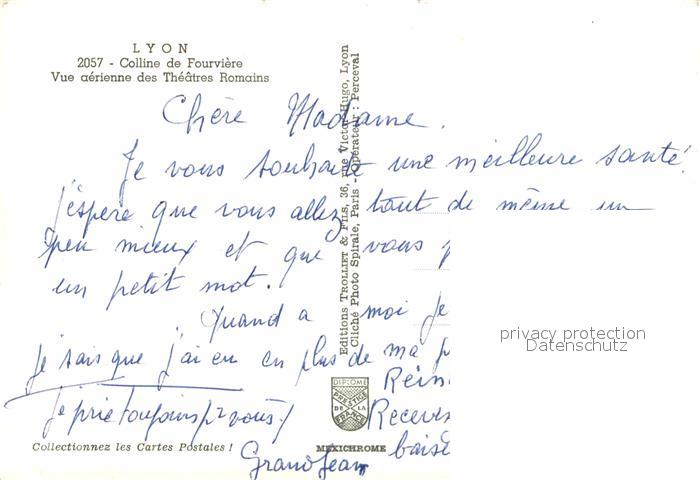 LYON
2057 - Colline de Fourvière
Vue aérienne des Théâtres Romains
Chère Madame.
Je vous souhaite une meilleure santé!
j'espère que vous allez tout de même un
peu mieux et que vous
un petit mot.
Quand a moi je
je sais que j'ai eu en plus de ma
Rein
je prie toujours pr vous!
Recevez
baise
GrandJean
Editions TROLLIET & FILS, 36, rue Victor-Hugo, Lyon
Cliché Photo Spirale, Paris - Opérateur : Perceval
DIPLOME
PRESTIGE
DE LA
FRANCE
Collectionnez les Cartes Postales !
MEXICHROME
privacy protection
Datenschutz